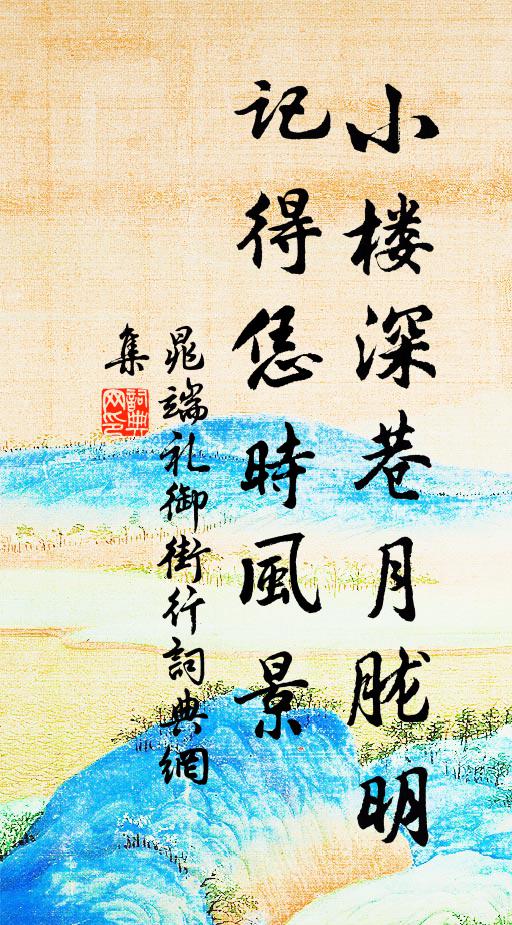 小楼深巷月胧明
记得恁時風景
晁端礼御街行詞典網
集
詞典网印